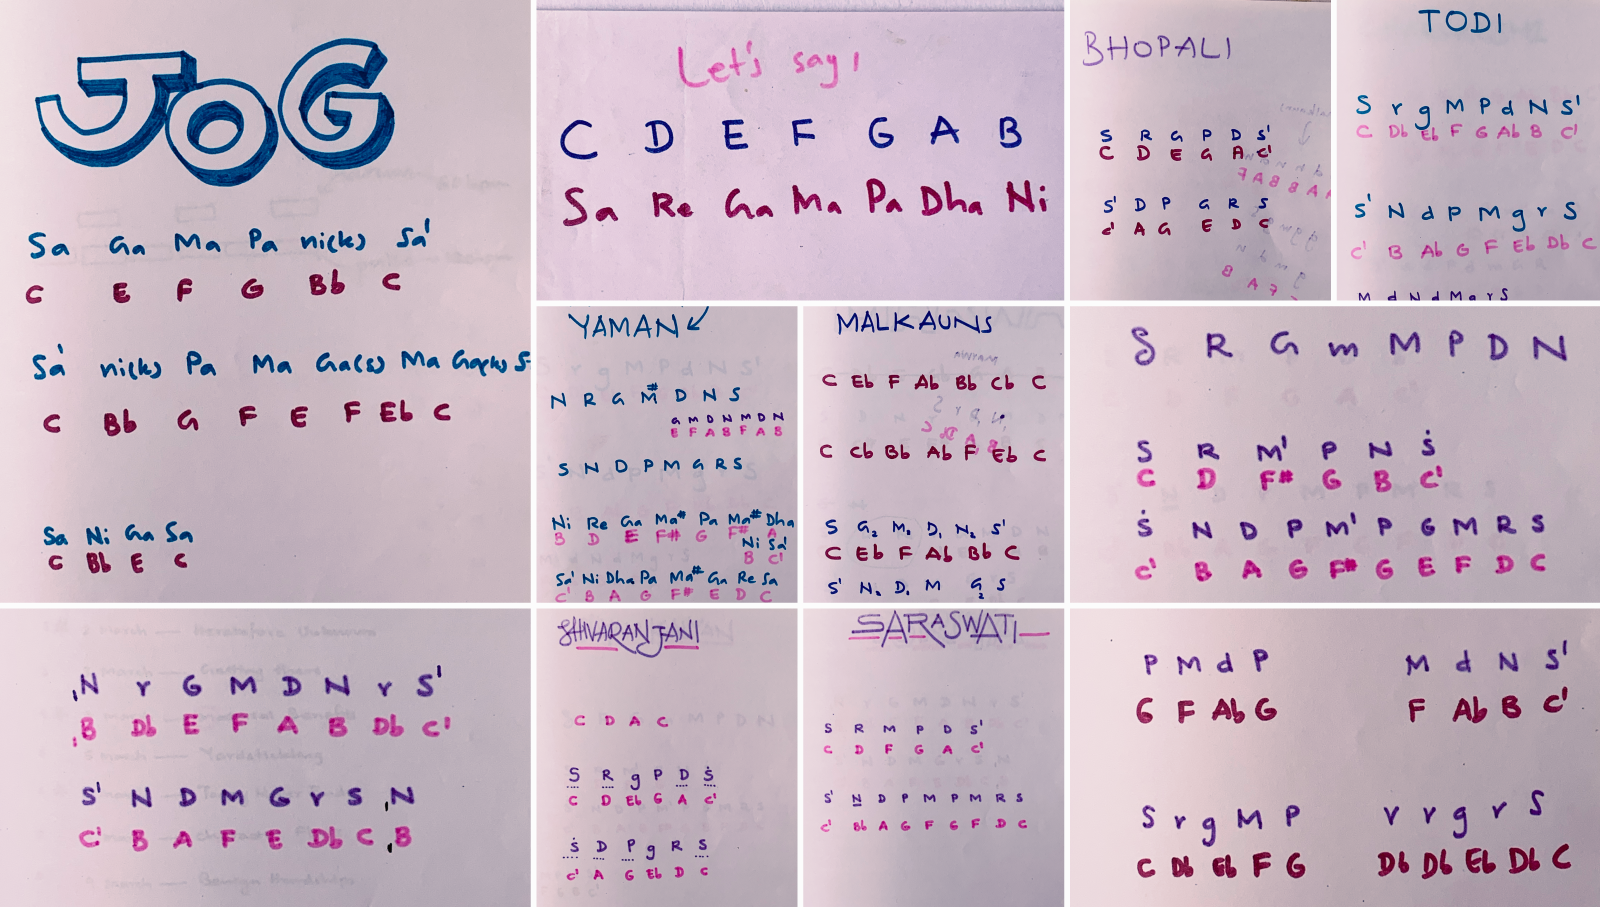 JOG
Sa Ga Ma Pa ni(k) Sa'
C E F G Bb C
Sa' ni(k) Pa Ma Ga(s) Ma Ga(k) S
C Bb G F E F Eb C
Sa Ni Ga Sa
C Bb E C
Let's say,
C D E F G A B
Sa Re Ga Ma Pa Dha Ni
BHOPALI
S R G P D S'
C D E G A C'
S' D P G R S
C' A G E D C
TODI
S r g M P d N S'
C Db Eb F G Ab B C'
S' N d P M g r S
C' B Ab G F Eb Db C
M d N d M g r S
YAMAN
N R G M# D N S
G M D N M D N
E F A B F A B
S N D P M G R S
Ni Re Ga Ma# Pa Ma# Dha
B D E F# G F# A
Ni Sa'
B C'
Sa' Ni Dha Pa Ma# Ga Re Sa
C' B A G F# E D C
MALKAUNS
C Eb F Ab Bb Cb C
C Cb Bb Ab F Eb C
S G2 M, D, N2 S'
C Eb F Ab Bb C
S' N. D. M G2 S
S R G m M P D N
S R M' P N Ṡ
C D F# G B C'
Ṡ N D P M' P G M R S
C' B A G F# G E F D C
,N r G M D N r S'
,B Db E F A B Db C'
S' N D M G r S ,N
C' B A F E Db C ,B
SHIVARANJANI
C D A C
S R g P D Ṡ
C D Eb G A C'
Ṡ D P g R S
C' A G Eb D C
SARASWATI
S R M P D S'
C D F G A C'
S' N D P M P M R S
C' Bb A G F G F D C
P M d P
G F Ab G
M d N S'
F Ab B C'
S r g M P
C Db Eb F G
r r g r S
Db Db Eb Db C